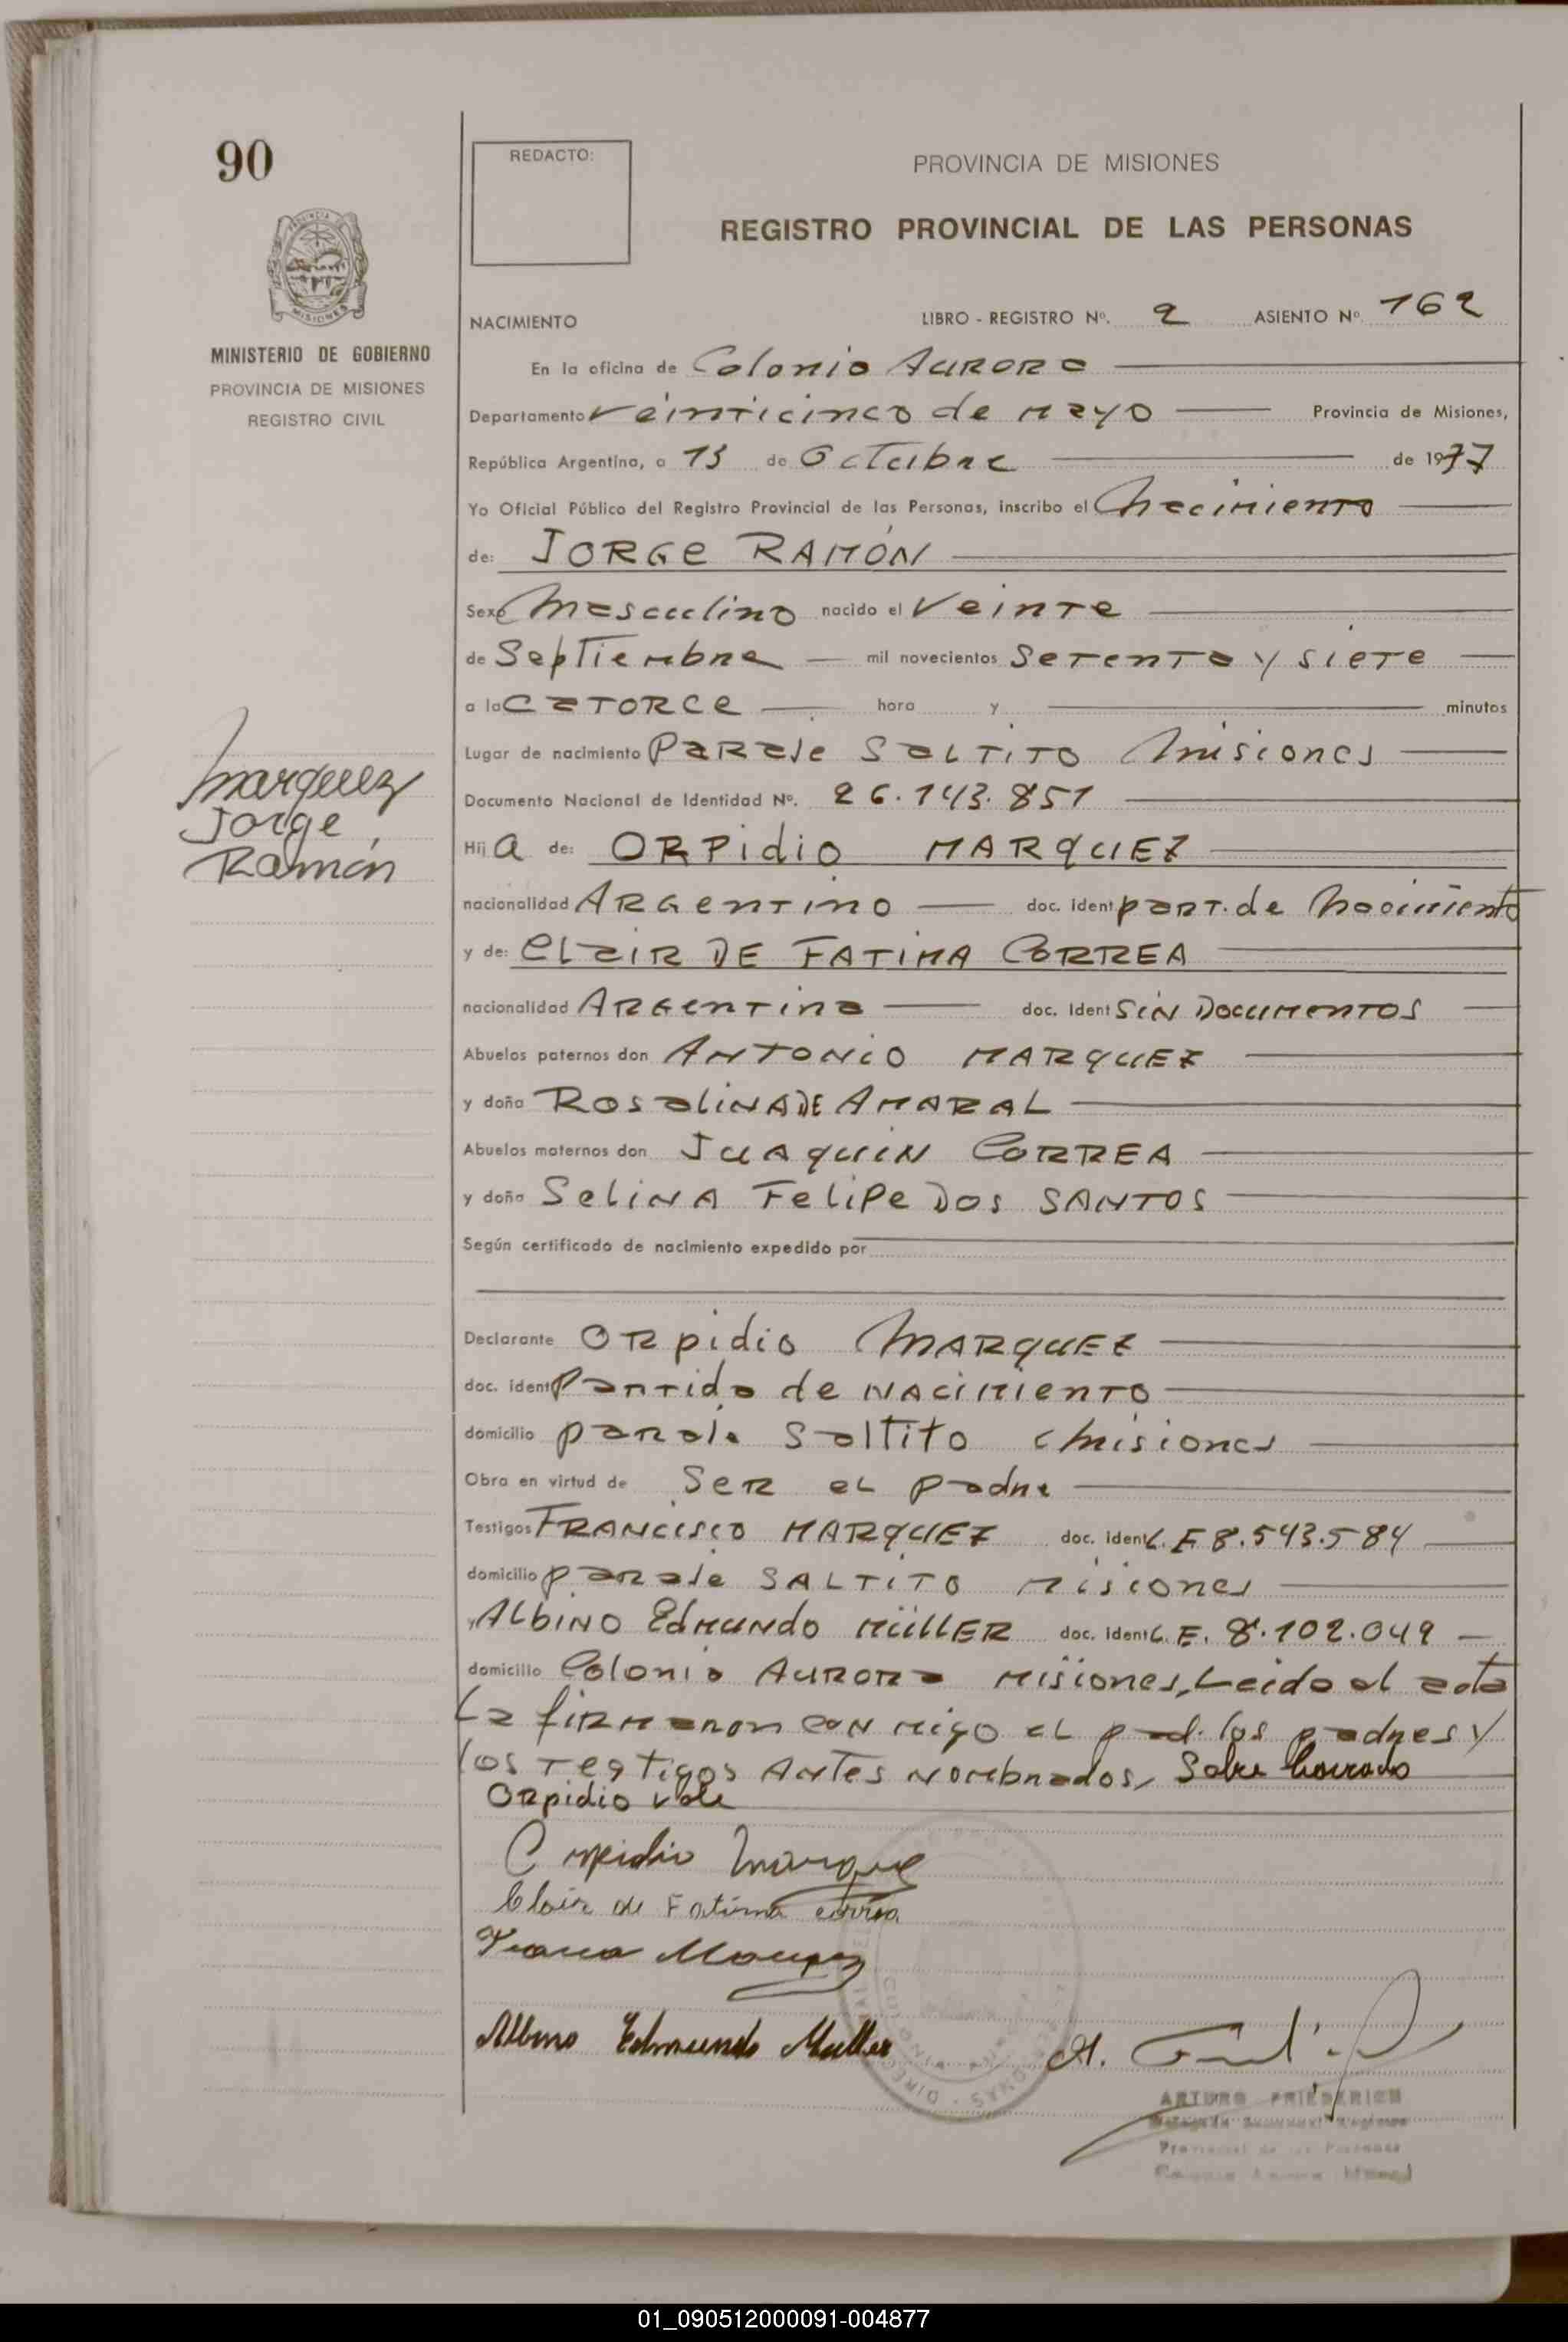 90
REDACTO:
PROVINCIA DE MISIONES
REGISTRO PROVINCIAL DE LAS PERSONAS
MISIONES
MINISTERIO DE GOBIERNO
PROVINCIA DE MISIONES
REGISTRO CIVIL
NACIMIENTO LIBRO - REGISTRO Nº. 2 ASIENTO Nº 162
En la oficina de Colonia AURORA
Departamento Veinticinco de Mayo Provincia de Misiones,
República Argentina, a 13 de Octubre de 1977
Yo Oficial Público del Registro Provincial de las Personas, inscribo el Nacimiento
de: JORGE RAMÓN
Sexo Masculino nacido el Veinte
de Septiembre mil novecientos Setenta y siete
a la CATORCE hora y minutos
Lugar de nacimiento PARAJE SALTITO Misiones
Marquez
Jorge
Ramón
Documento Nacional de Identidad Nº. 26.143.851
Hij a de: ORPidio MARQUEZ
nacionalidad ARGentino doc. ident part. de Nacimiento
y de: CLAIR DE FATIMA CORREA
nacionalidad ARGentina doc. ident SIN DOCUMENTOS
Abuelos paternos don ANTONIO MARQUEZ
y doña ROSALINA DE AMARAL
Abuelos maternos don JUAQUIN CORREA
y doña SELINA FELIPE DOS SANTOS
Según certificado de nacimiento expedido por
Declarante ORpidio MARQUEZ
doc. ident Partida de NACIMIENTO
domicilio paraje Saltito Misiones
Obra en virtud de SER EL padre
Testigos FRANCISCO MARQUEZ doc. ident L.E 8.543.584
domicilio paraje SALTITO Misiones
y ALBINO Edmundo MÜLLER doc. ident L.E. 8.102.049
domicilio Colonia AURORA Misiones, Leido el acta
La firmaron CON migo EL pad. los padres y
los testigos ANTES Nombrados, Sobre borrado
ORpidio vale
Orpidio Marque
Clair de Fatima correa
Albino Edmundo Muller
ARTURO FRIEDERICH
Provincial de las Personas
01_090512000091-004877